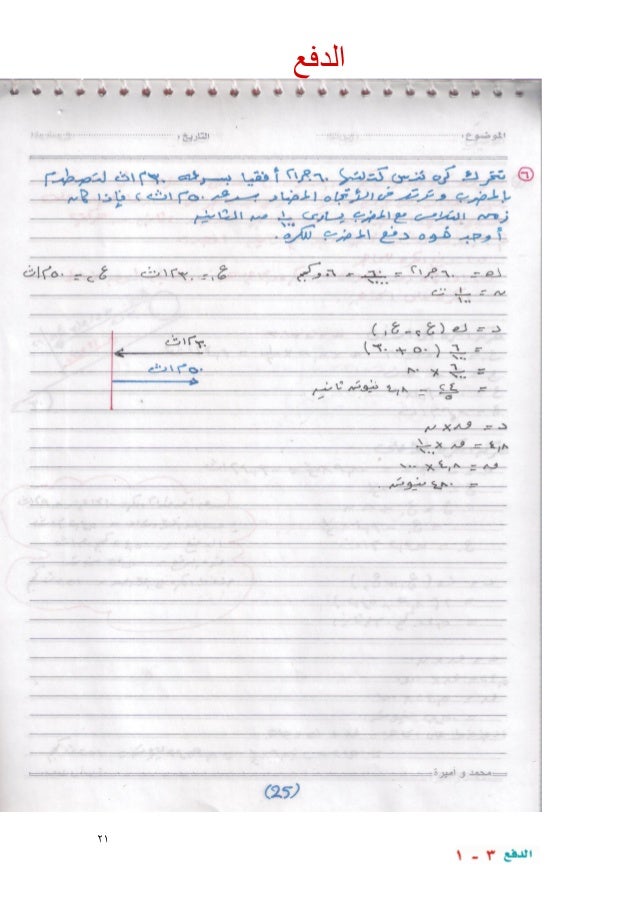 الدفع
الموضوع: التاريخ:
٦ تتحرك كرة تنس كتلتها ٦٠ جرام أفقيا بسرعة ٣٠ م/ث لتصطدم
بالمضرب وترتد في الأتجاه المضاد بسرعة ٥٠ م/ث، فإذا كان
زمن التلامس مع المضرب يساوى ١/١٠٠ من الثانية
أوجد قوة دفع المضرب للكرة.
ك = ٦٠ جرام = ٦٠/١٠٠٠ = ٦/١٠٠ كجم ع١ = ٣٠ م/ث ع٢ = ٥٠ م/ث
ن = ١/١٠٠ ث
د = ك (ع٢ - ع١)
= ٦/١٠٠ (٥٠ + ٣٠)
= ٦/١٠٠ × ٨٠
= ٢٤/٥ = ٤,٨ نيوتن ثانية
٣٠ م/ث
٥٠ م/ث
د = ق × ن
٤,٨ = ق × ١/١٠٠
ق = ٤,٨ × ١٠٠
= ٤٨٠ نيوتن.
محمد و أميرة
(25)
٢١
الدفع ٣ - ١